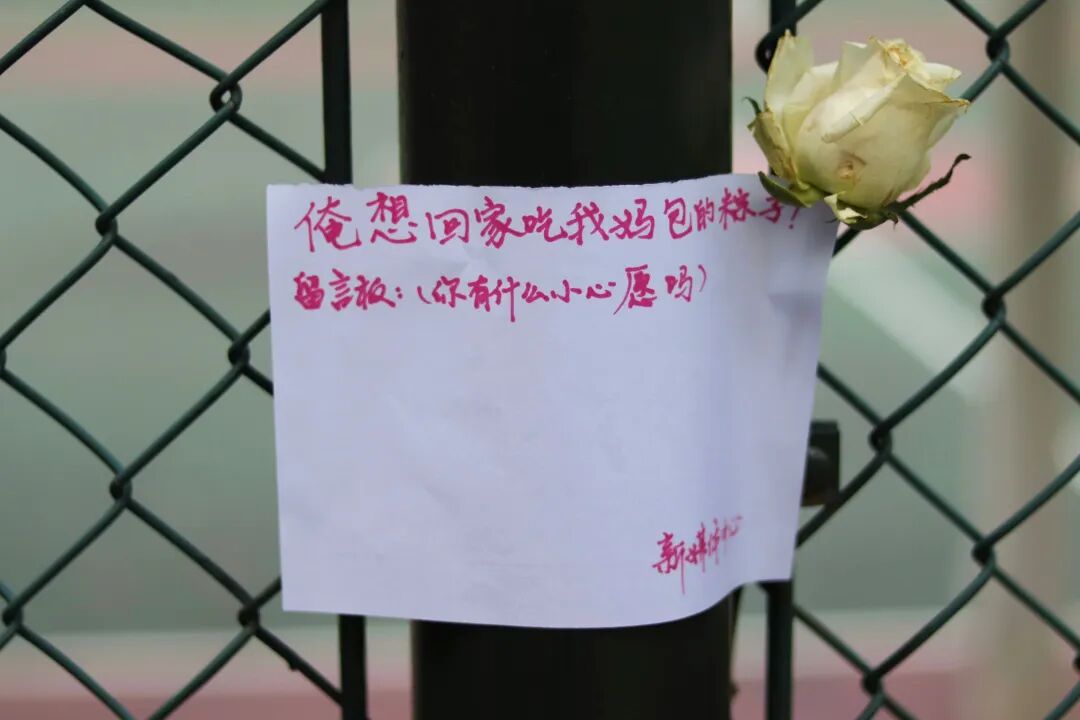 俺想回家吃我妈包的粽子！
留言板：（你有什么小心愿吗）
新媒体中心